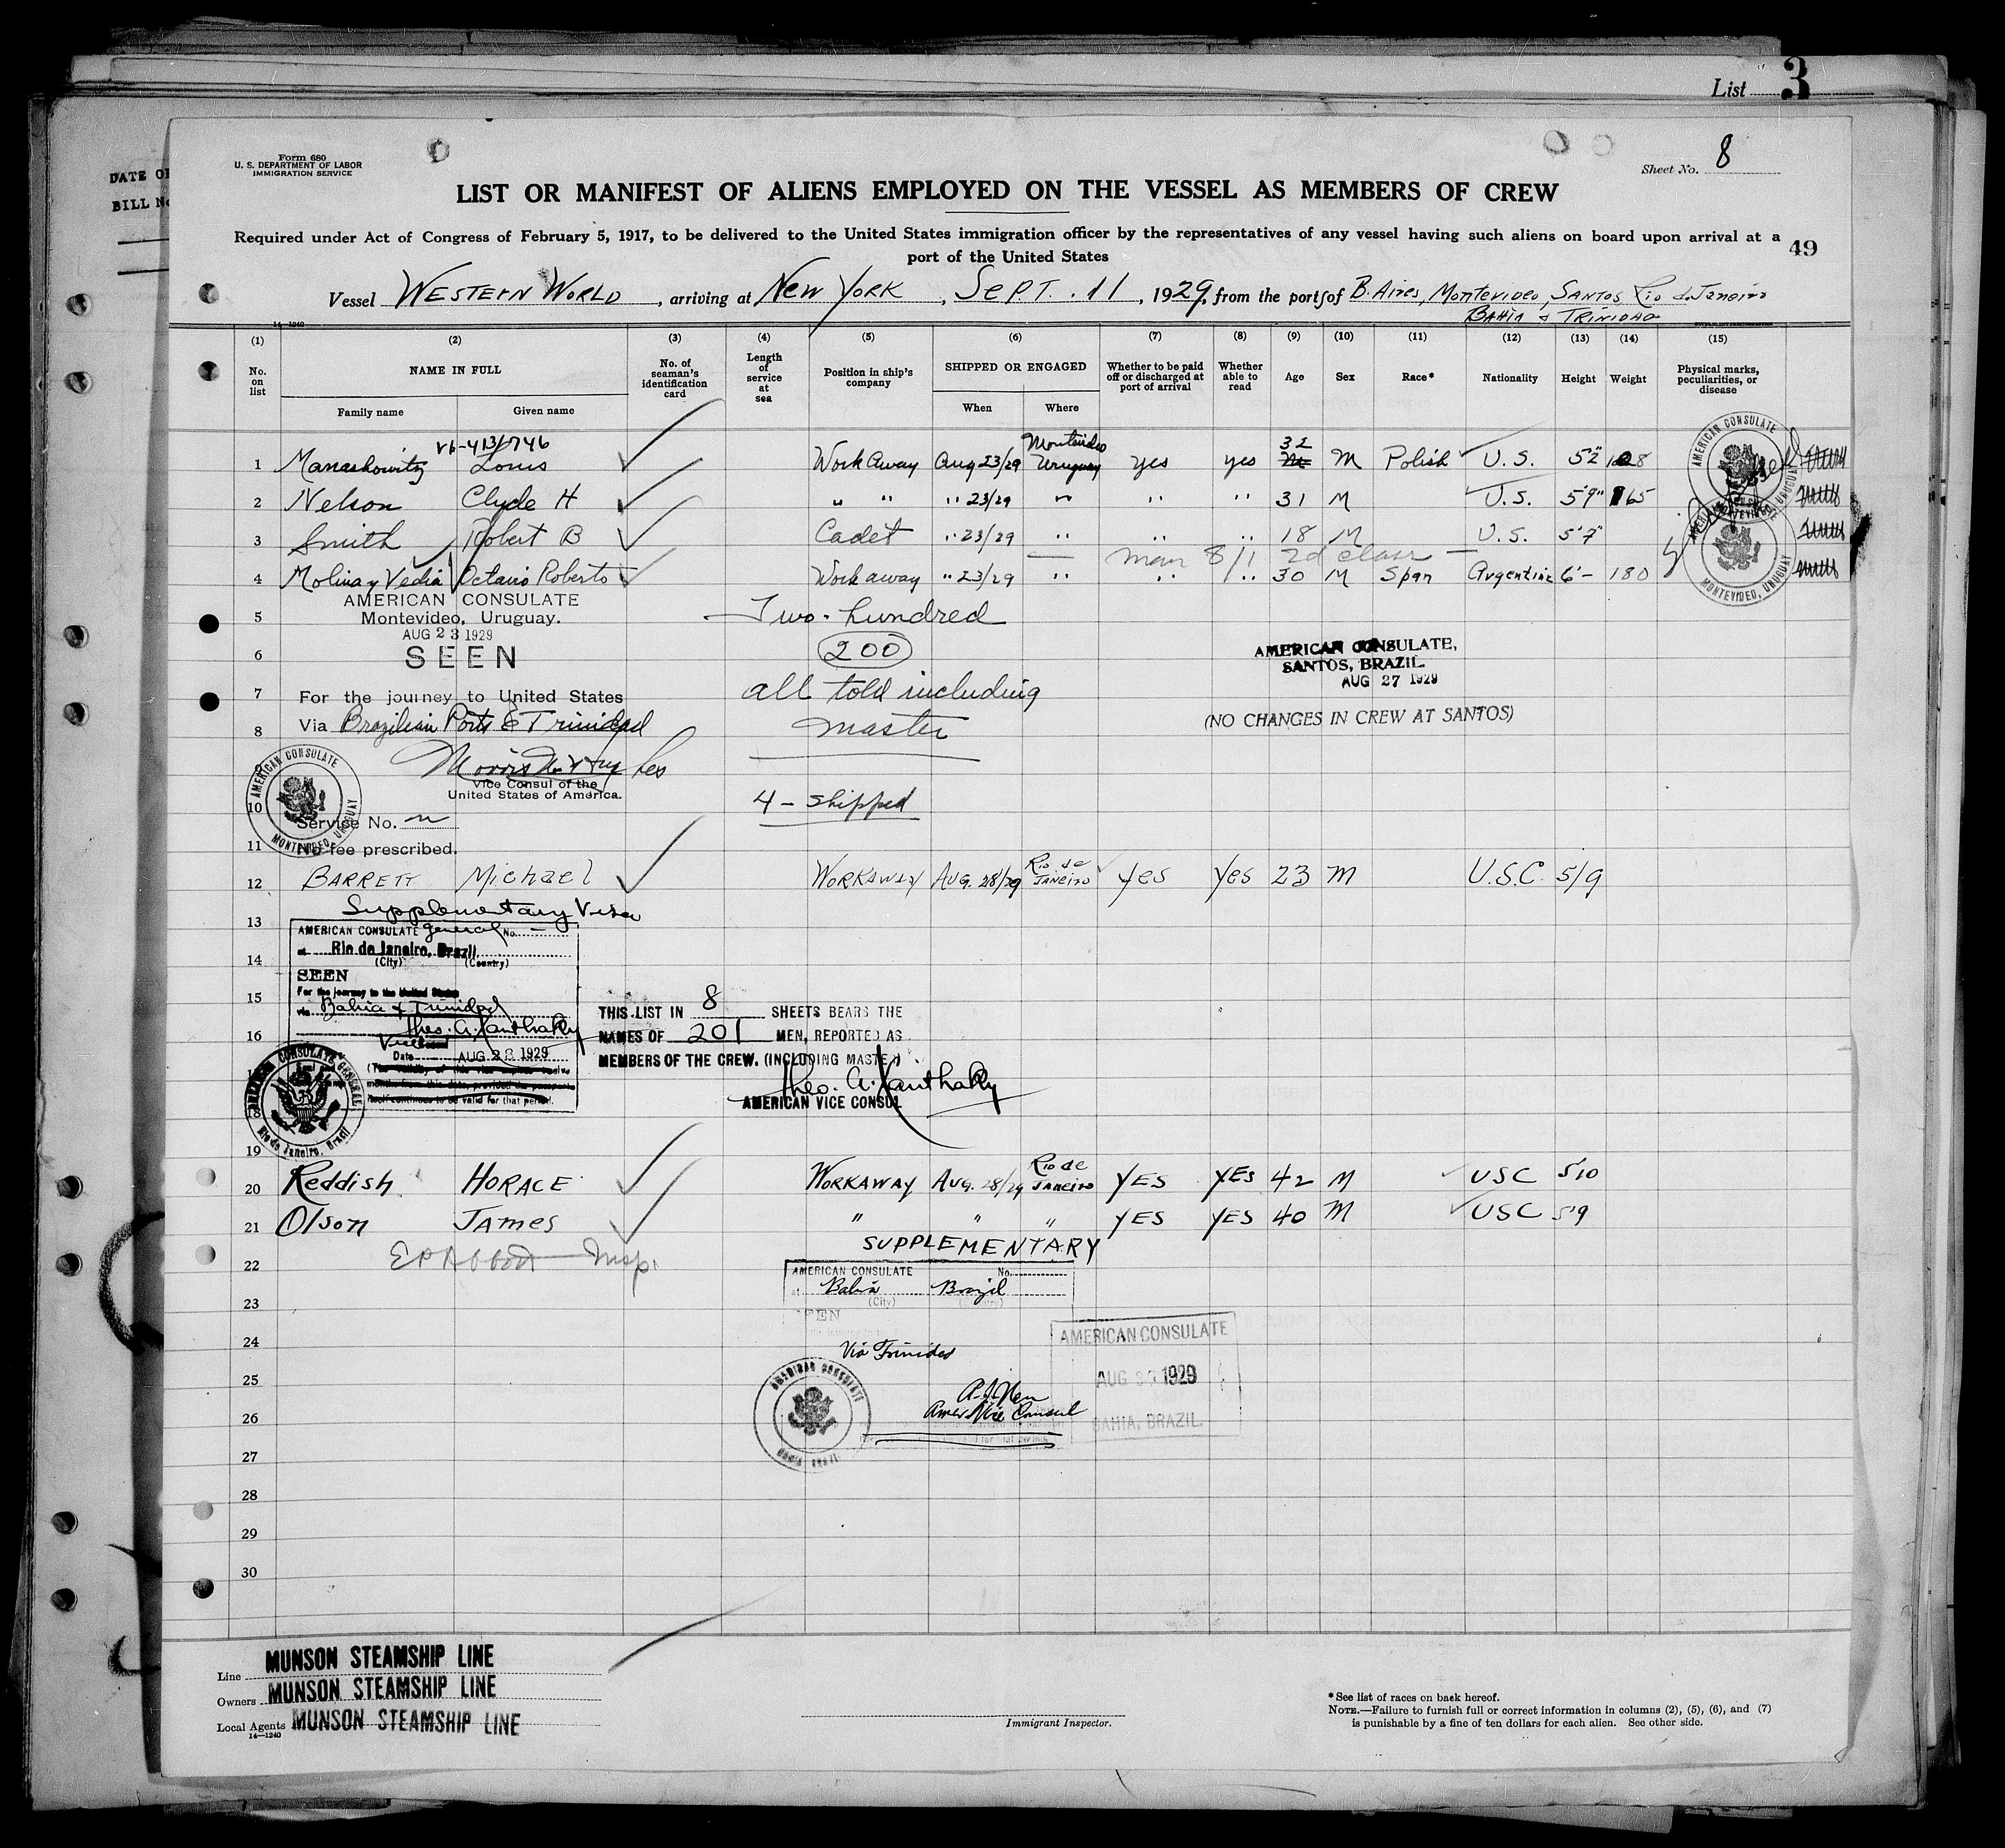 List 3
DATE OF
BILL No
Form 680
U. S. DEPARTMENT OF LABOR
IMMIGRATION SERVICE
Sheet No. 8
LIST OR MANIFEST OF ALIENS EMPLOYED ON THE VESSEL AS MEMBERS OF CREW
Required under Act of Congress of February 5, 1917, to be delivered to the United States immigration officer by the representatives of any vessel having such aliens on board upon arrival at a
port of the United States
49
Vessel WESTERN WORLD, arriving at NEW YORK, SEPT. 11, 1929, from the ports of B. Aires, Montevideo, Santos, Rio de Janeiro
BAHIA & TRINIDAD
14-1240
(1) (2) (3) (4) (5) (6) (7) (8) (9) (10) (11) (12) (13) (14) (15)
No. on list
NAME IN FULL
Family name Given name
No. of seaman's identification card
Length of service at sea
Position in ship's company
SHIPPED OR ENGAGED
When Where
Whether to be paid off or discharged at port of arrival
Whether able to read
Age
Sex
Race*
Nationality
Height
Weight
Physical marks, peculiarities, or disease
1 Manashowitz Louis Workaway Aug 23/29 Montevideo Uruguay yes yes 32 M Polish U.S. 5'2"
2 Nelson Clyde H " " " 23/29 " " " 31 M U.S. 5'9" 165
3 Smith Robert B Cadet " 23/29 " " " 18 M U.S. 5'7"
man 8/1 2d class
4 Molina y Vedia Octavio Roberto Workaway " 23/29 " " " 30 M Span Argentine 6'- 180
AMERICAN CONSULATE
MONTEVIDEO, URUGUAY
AMERICAN CONSULATE
Montevideo, Uruguay.
AUG 23 1929
SEEN
For the journey to United States
Via Brazilian Ports & Trinidad
Vice Consul of the
United States of America.
Service No.
No fee prescribed.
AMERICAN CONSULATE
MONTEVIDEO, URUGUAY
5
6
7
8
10
11
Two-hundred
200
all told including
master
4 - shipped
AMERICAN CONSULATE,
SANTOS, BRAZIL.
AUG 27 1929
(NO CHANGES IN CREW AT SANTOS)
12 BARRETT Michael WORKAWAY AUG. 28/29 Rio de Janeiro yes yes 23 M U.S.C. 5/9
Supplementary Visa
13
14
15
16
AMERICAN CONSULATE general No.
at Rio de Janeiro, Brazil.
(City) (Country)
SEEN
For the journey to the United States
via Bahia & Trinidad
Theo. A. Xanthaky
Date AUG 28 1929
AMERICAN CONSULATE GENERAL
Rio de Janeiro, Brazil
THIS LIST IN 8 SHEETS BEARS THE
NAMES OF 201 MEN, REPORTED AS
MEMBERS OF THE CREW. (INCLUDING MASTER)
Theo. A. Xanthaky
AMERICAN VICE CONSUL
19
20 Reddish HORACE WORKAWAY AUG. 28/29 Rio de Janeiro YES YES 42 M USC 5'10
21 Olson JAMES " " " YES YES 40 M USC 5'9
22
SUPPLEMENTARY
AMERICAN CONSULATE No.
at Bahia Brazil
(City)
SEEN
Via Trinidad
Amer Vice Consul
AMERICAN CONSULATE
BAHIA BRAZIL
AMERICAN CONSULATE
AUG 30 1929
BAHIA, BRAZIL.
23
24
25
26
27
28
29
30
Line MUNSON STEAMSHIP LINE
Owners MUNSON STEAMSHIP LINE
Local Agents MUNSON STEAMSHIP LINE
14-1240
Immigrant Inspector.
* See list of races on back hereof.
NOTE.—Failure to furnish full or correct information in columns (2), (5), (6), and (7)
is punishable by a fine of ten dollars for each alien. See other side.